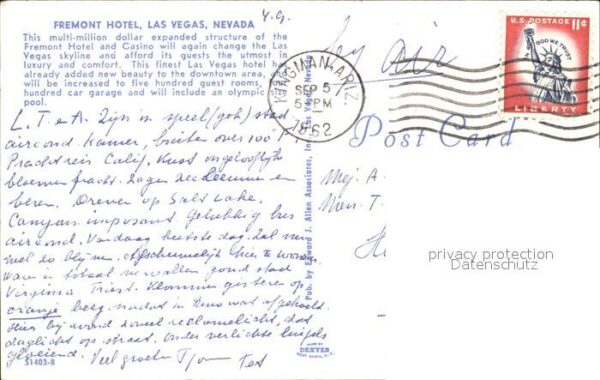 FREMONT HOTEL, LAS VEGAS, NEVADA
This multi-million dollar expanded structure of the
Fremont Hotel and Casino will again change the Las
Vegas skyline and afford its guests the utmost in
luxury and comfort. This finest Las Vegas hotel has
already added new beauty to the downtown area,
will be increased to five hundred guest rooms,
hundred car garage and will include an olympic
pool.
L. T. en A. Zijn in speel(gok) stad
aircond. Kamer, buiten over 100°!
Prachtreis Calif. Kust ongelooflijk
bloemen pracht. Zagen zeeleeuwen en
beren. Dreven op Salt Lake.
Canyons imposant. Gelukkig bus
aircond. Vandaag heetste dag. Zal
wel zo blijven. Afschuwelijk hier te wonen
Waren in totaal vervallen goud stad
Virginia
oranje berg. in Reno wat afgekoeld.
Hier bij avond zoveel reclamelicht, dat
daglicht op straat. Onder verlichte luifels
gloeiend. Veel groeten
S1403-8
MADE BY
DEXTER
WEST NYACK, N.Y.
Pub. by Edward J. Allen Associates, Inc.
KINGMAN, ARIZ.
SEP 5
5 PM
1962
By air
Post Card
U.S. POSTAGE 11¢
IN GOD WE TRUST
LIBERTY
Mej. A.
Mevr. T.
privacy protection
Datenschutz